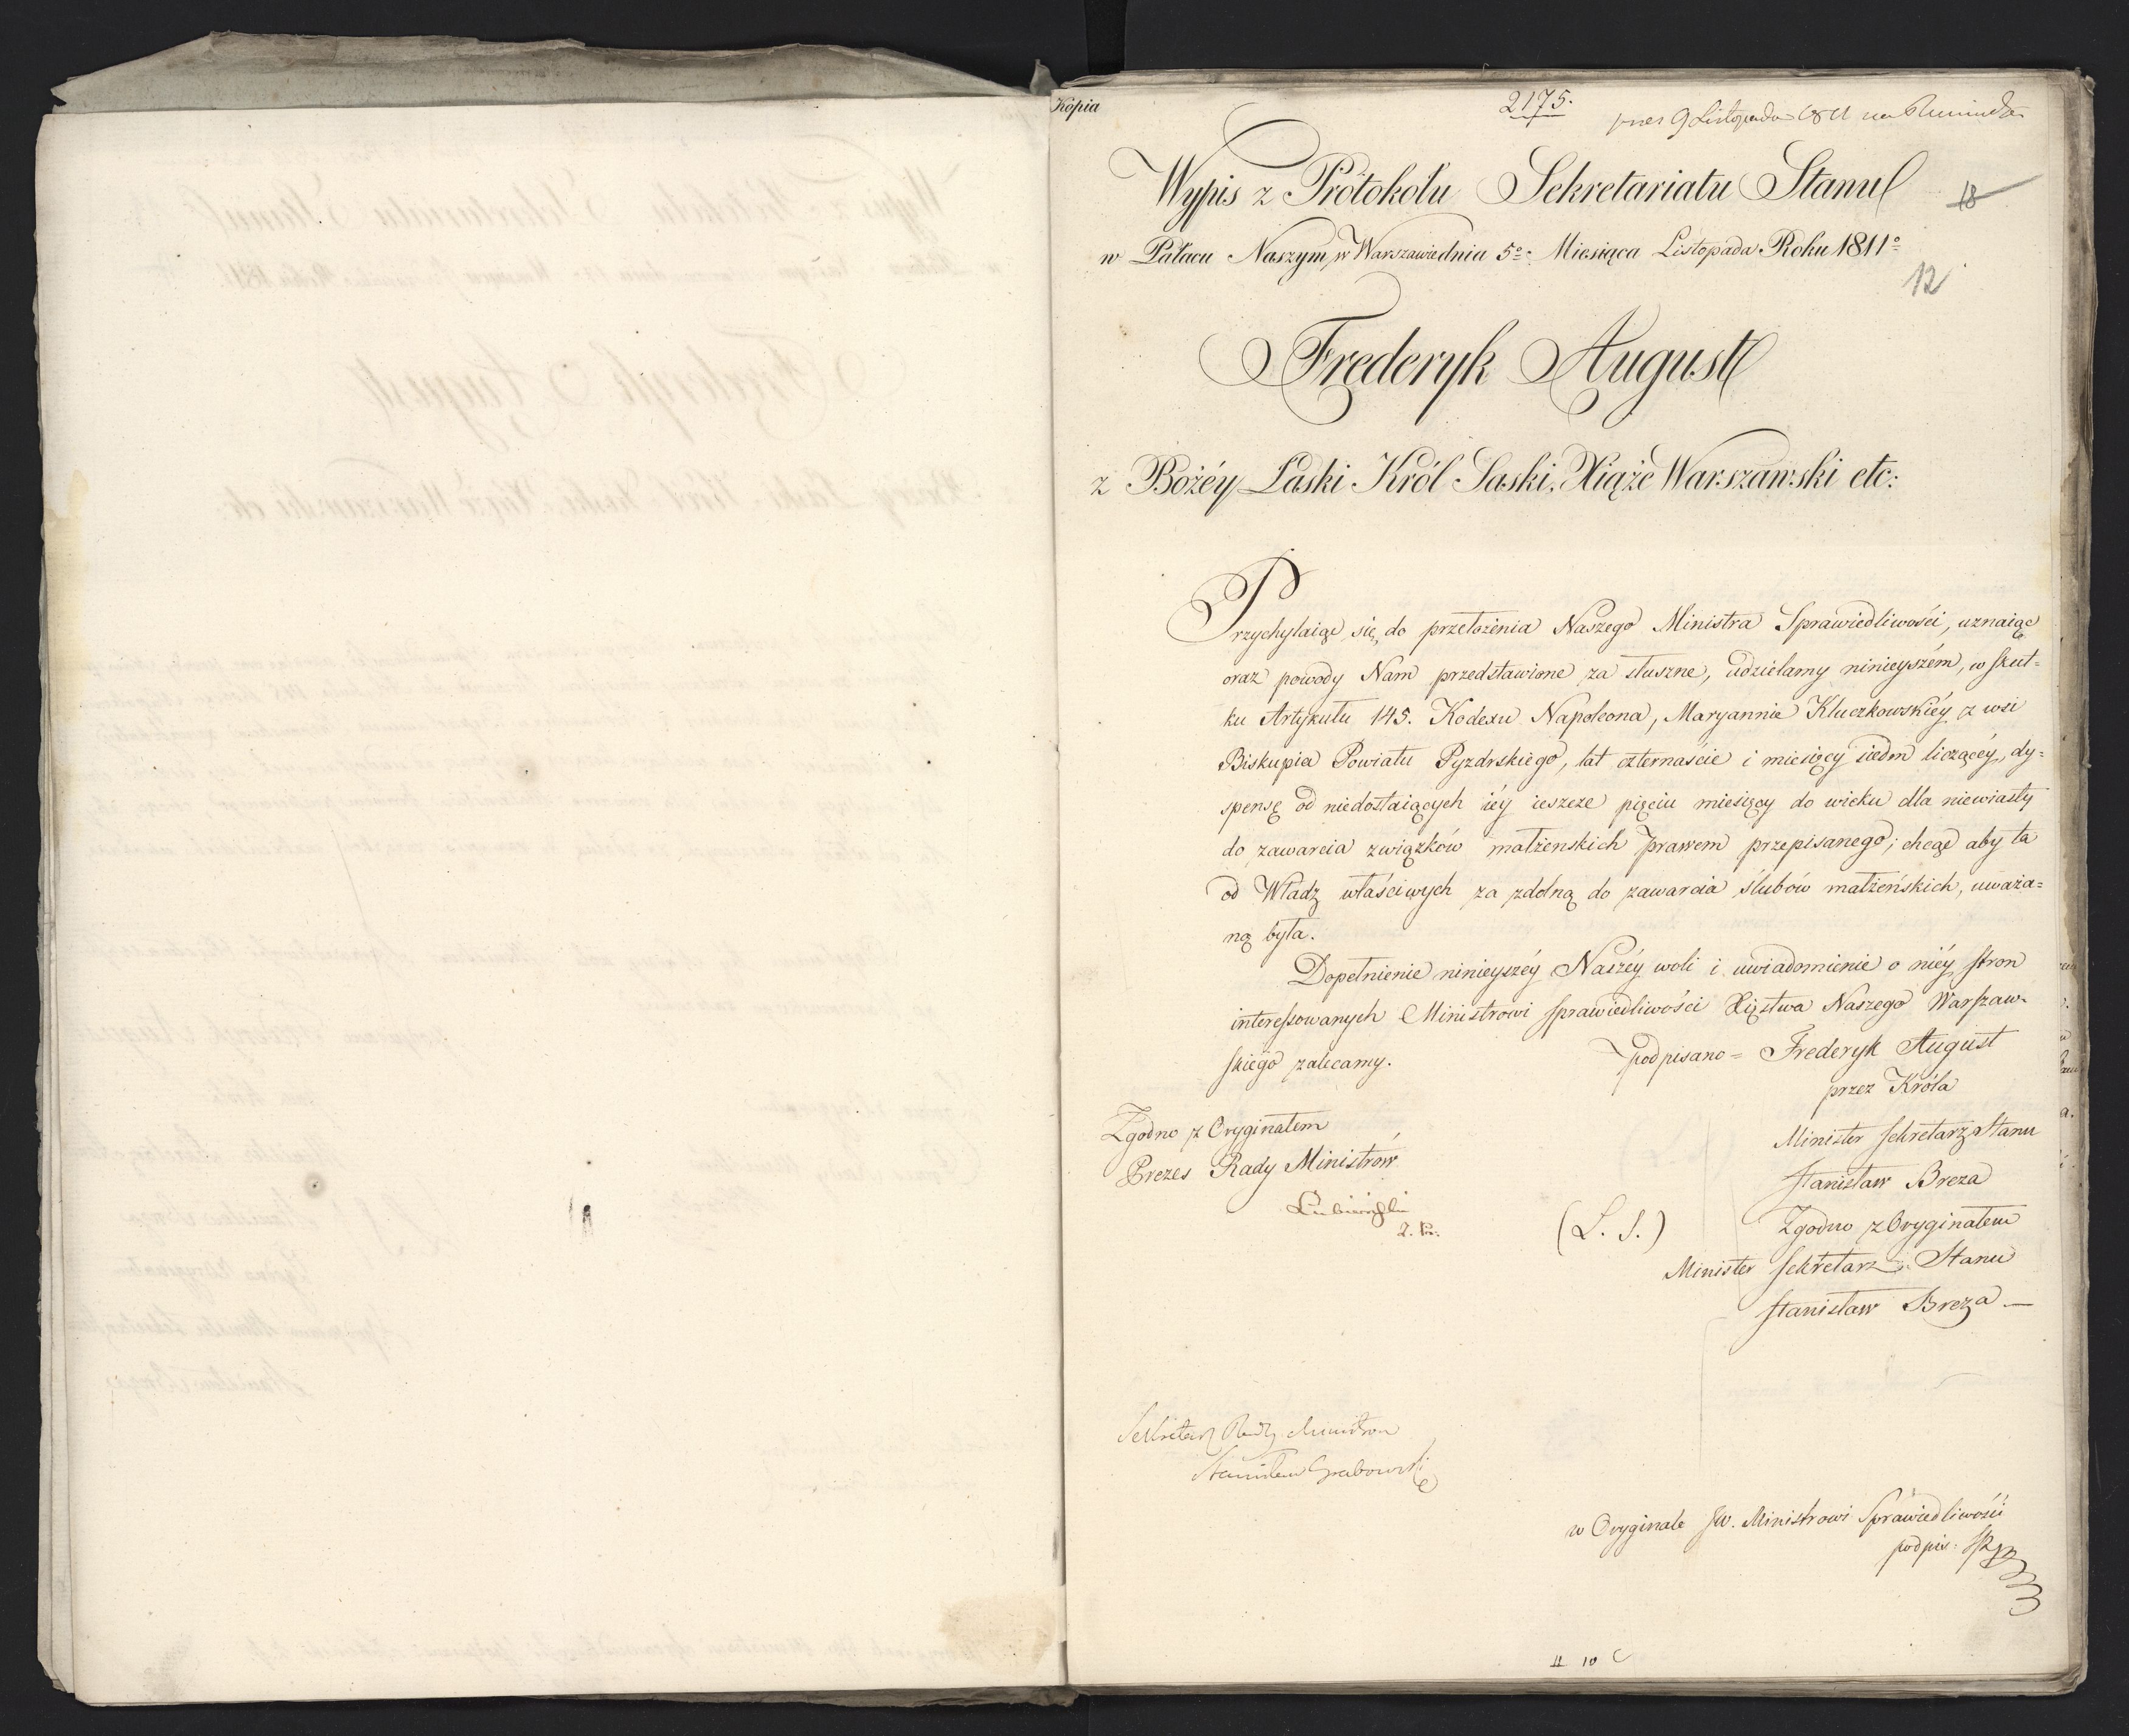 Kópia
2175.
9 Listopada 1811 na
Wypis z Protokołu Sekretariatu Stanu
18
w Pałacu Naszym w Warszawie dnia 5º Miesiąca Listopada Roku 1811º
12
Frederyk August
z Bożéy Łaski Król Saski, Xiąże Warszawski etc:
Przychylaiąc się do przełożenia Naszego Ministra Sprawiedliwości, uznaiąc
oraz powody Nam przedstawione za słuszne, udzielamy ninieyszém, w skut=
ku Artykułu 145. Kodexu Napoleona, Maryannie Kluczkowskiéy z wsi
Biskupia Powiatu Pyzdrskiego, lat czternaście i miesięcy siedm liczącéy, dy=
spensę od niedostaiących iéy ieszcze pięciu miesięcy do wieku dla niewiasty
do zawarcia związków małżenskich prawem przepisanego; chcąc aby ta
od Władz właściwych za zdolną do zawarcia ślubów małżeńskich, uważa=
ną była.
Dopełnienie ninieyszéy Naszéy woli i uwiadomienie o niéy stron
interessowanych Ministrowi sprawiedliwości Xięstwa Naszego Warszaw=
skiego zalecamy.
podpisano = Frederyk August
przez Króla
Minister sekretarz Stanu
Stanisław Breza
Zgodno z Oryginałem
Prezes Rady Ministrów
Lubieński
(L. S.)
Zgodno z Oryginałem
Minister sekretarz Stanu
Stanisław Breza —
Sekretarz Rady Ministrow
Stanisław Grabowski
w Oryginale JW. Ministrowi Sprawiedliwości
podpis:
11 10